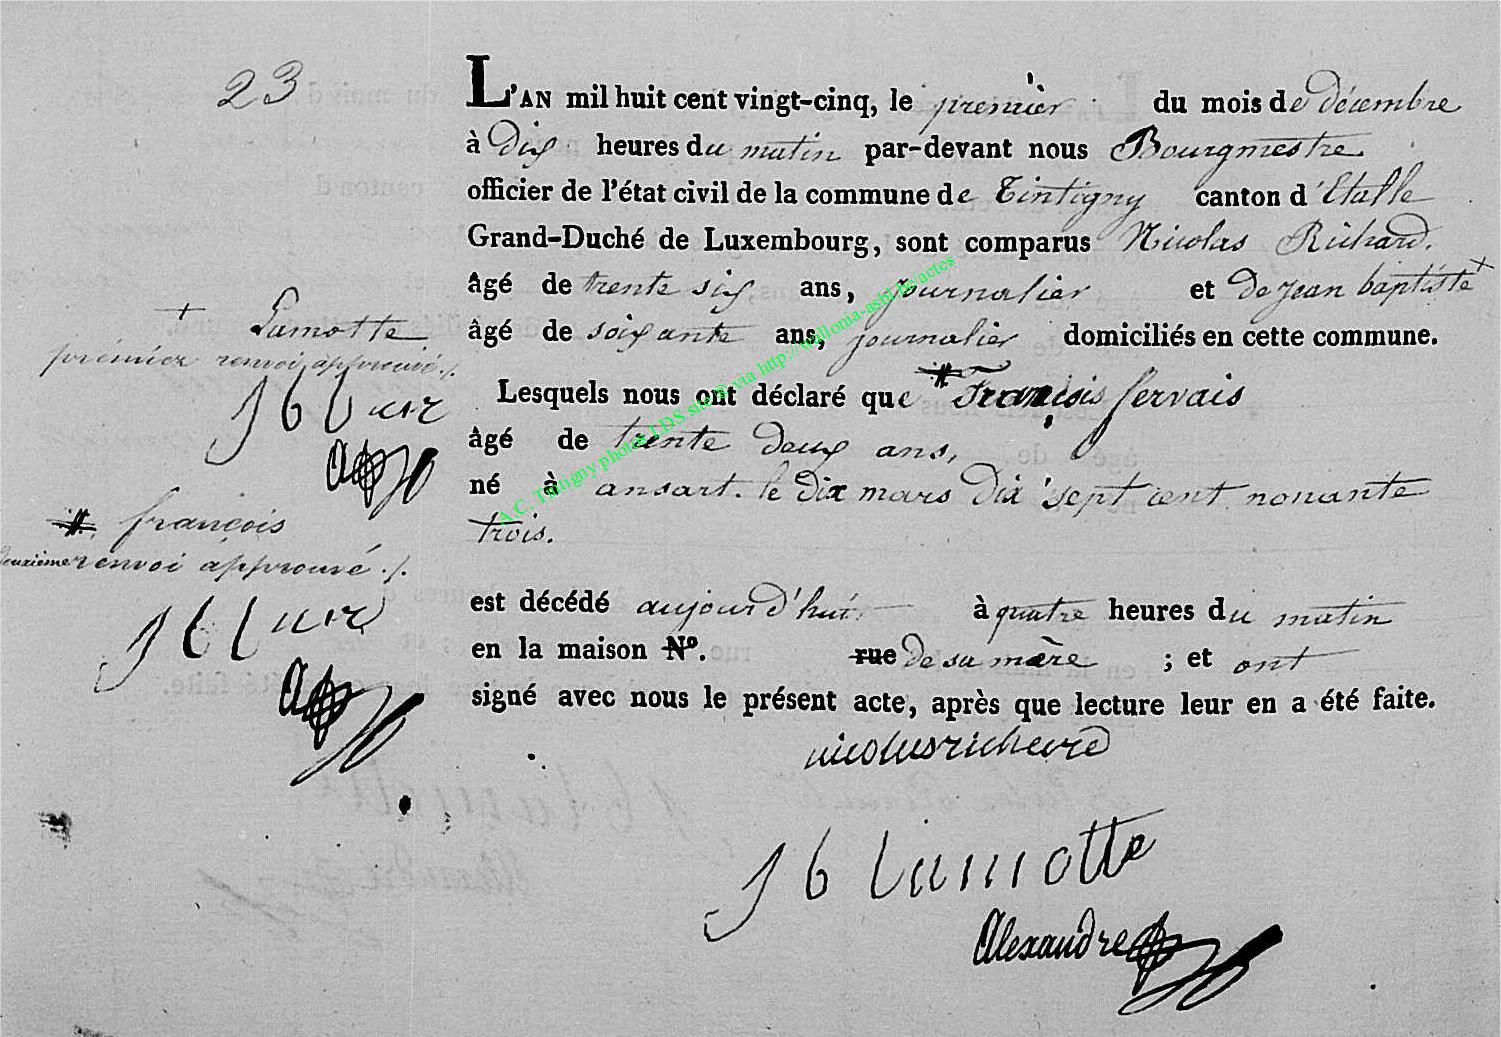 23
L'AN mil huit cent vingt-cinq, le premièr du mois de décembre
à Dix heures du matin par-devant nous Bourgmestre
officier de l'état civil de la commune de Tintigny canton d'Etalle
Grand-Duché de Luxembourg, sont comparus Nicolas Richard.
âgé de trente six ans, journalier et de jean baptiste +
âgé de soixante ans, journalier domiciliés en cette commune.
+ Lamotte
premier renvoi approuvé ./.
Lesquels nous ont déclaré que François Servais
âgé de trente deux ans,
né à ansart. le dix mars Dix sept cent nonante
trois.
françois
deuxième renvoi approuvé ./.
est décédé aujourd'hui à quatre heures du matin
en la maison No. rue De sa mère ; et ont
signé avec nous le présent acte, après que lecture leur en a été faite.
nicolas richard
J b lamotte
Alexandre
A.C. Tintigny photos LDS site @ via http://wallonia-asbl.be/actes